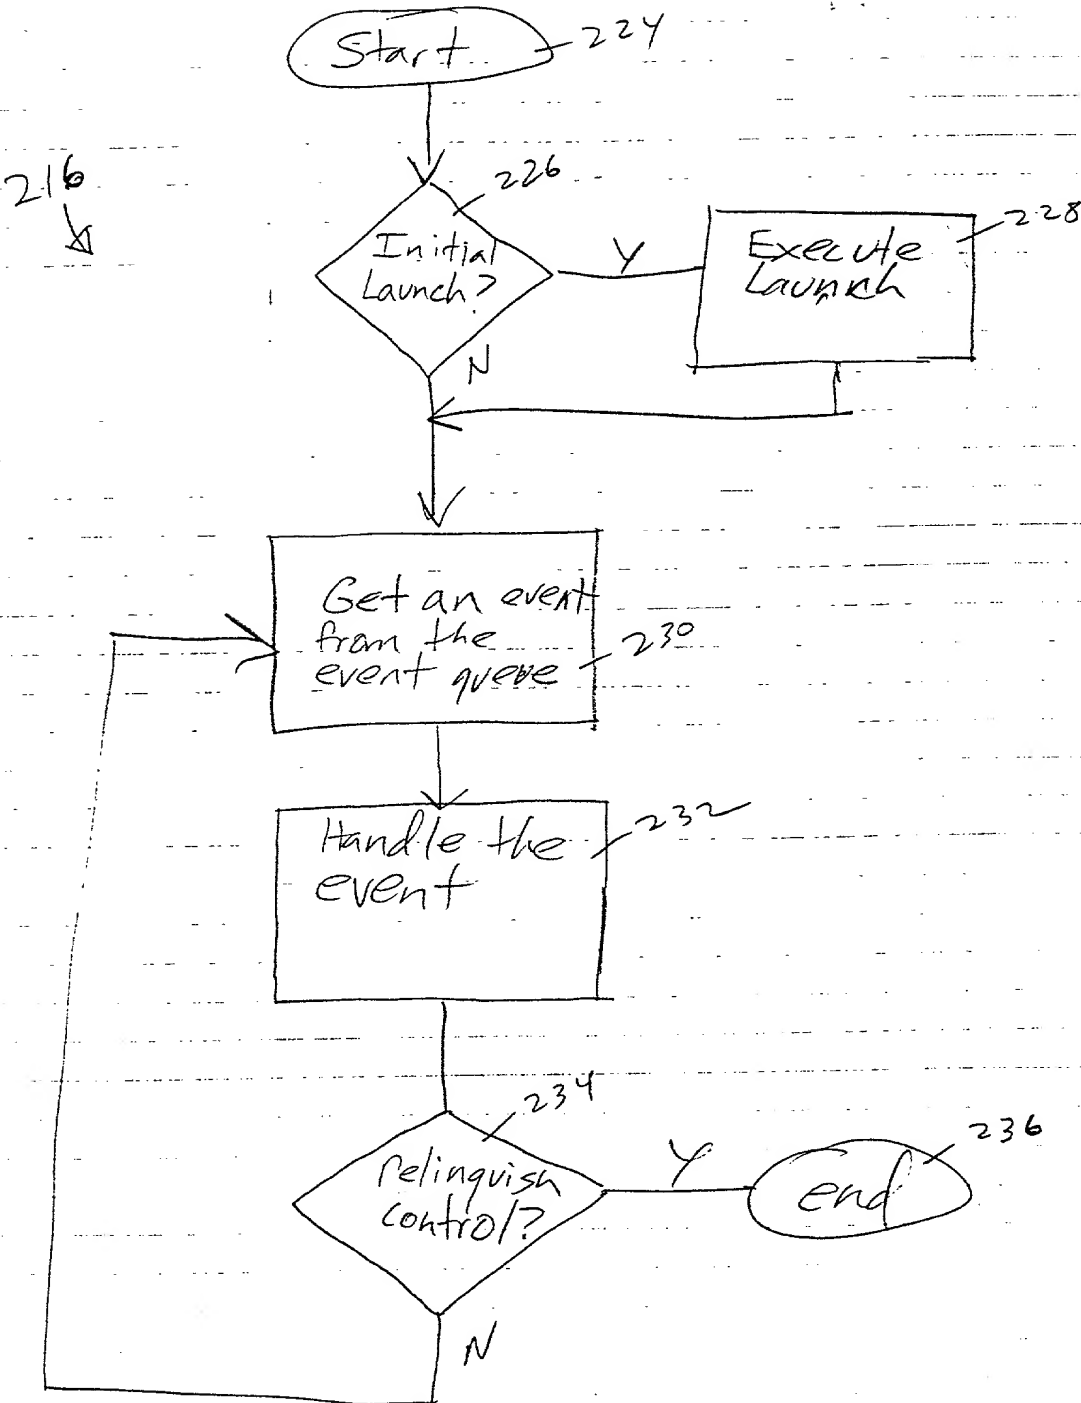 Start
224
216
226
Initial
Launch?
Y
Execute
Launch
228
N
Get an event
from the
event queue
230
Handle the
event
232
234
relinquish
control?
Y
end
236
N